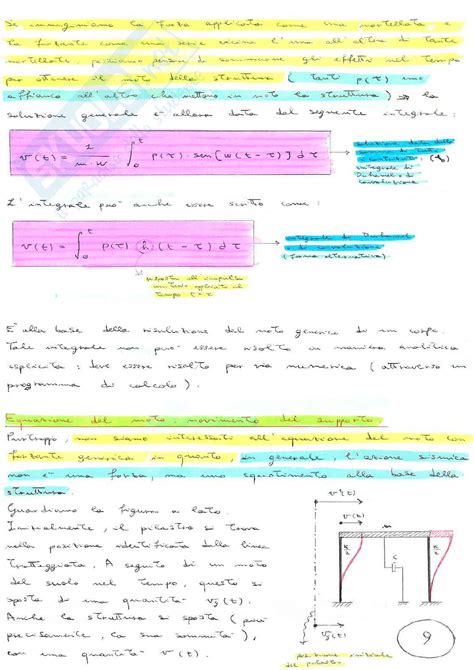 Se immaginiamo la forza applicata come una martellata e
la forzante come una serie vicina l'una all'altra di tante
martellate, possiamo pensare di sommare gli effetti nel tempo
per ottenere il moto della struttura ( tanti p(τ) uno
affianco all'altro che mettono in moto la struttura) → la
soluzione generale è allora data dal seguente integrale:
v(t) = 1/(m·w) ∫₀ᵗ p(τ) · sen[w(t-τ)] dτ
soluzione data dalla
integrale di
Duhamel o di
convoluzione
L'integrale può anche essere scritto come:
v(t) = ∫₀ᵗ p(τ) h(t-τ) dτ
integrale di Duhamel
o di convoluzione
(forma alternativa)
risposta all'impulso
unitario applicato al
tempo t = τ
È alla base della risoluzione del moto generico di un corpo.
Tale integrale non può essere risolto in maniera analitica
esplicita: deve essere risolto per via numerica (attraverso un
programma di calcolo).
Equazione del moto: movimento del supporto
Purtroppo, non siamo interessati all'equazione del moto con
forzante generica in quanto, in generale, l'azione sismica
non è una forza, ma uno spostamento alla base della
struttura.
Guardiamo la figura a lato.
Inizialmente, il pilastro si trova
nella posizione identificata dalla linea
tratteggiata. A seguito di un moto
del suolo nel tempo, questo si
sposta di una quantità vg(t).
Anche la struttura si sposta (più
precisamente, la sua sommità),
con una quantità v(t).
v(t)
m
K/2
c
K/2
vg(t)
posizione iniziale
del pilastro
9